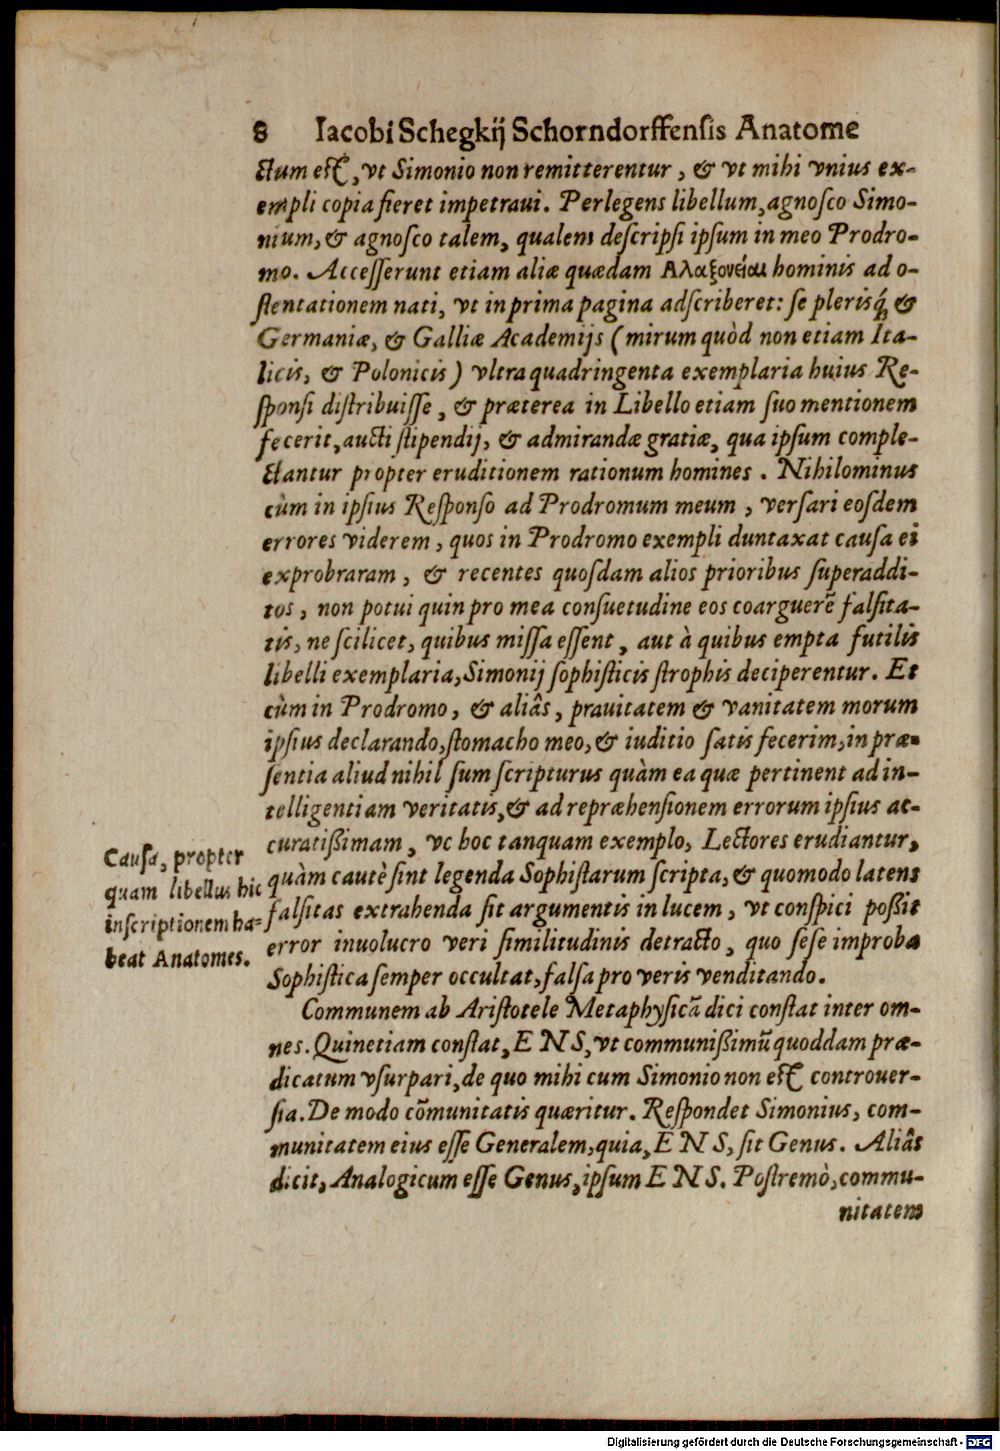 8 Iacobi Schegkij Schorndorffensis Anatome
ctum est, vt Simonio non remitterentur, & vt mihi vnius ex-
empli copia fieret impetraui. Perlegens libellum, agnosco Simo-
nium, & agnosco talem, qualem descripsi ipsum in meo Prodro-
mo. Accesserunt etiam aliæ quædam Αλαξονείαι hominis ad o-
stentationem nati, vt in prima pagina adscriberet: se plerisq́; &
Germaniæ, & Galliæ Academijs (mirum quòd non etiam Ita-
licis, & Polonicis) vltra quadringenta exemplaria huius Re-
sponsi distribuisse, & præterea in Libello etiam suo mentionem
fecerit, aucti stipendij, & admirandæ gratiæ, qua ipsum comple-
ctantur propter eruditionem rationum homines. Nihilominus
cùm in ipsius Responso ad Prodromum meum, versari eosdem
errores viderem, quos in Prodromo exempli duntaxat causa ei
exprobraram, & recentes quosdam alios prioribus superaddi-
tos, non potui quin pro mea consuetudine eos coarguerē falsita-
tis, ne scilicet, quibus missa essent, aut à quibus empta futilis
libelli exemplaria, Simonij sophisticis strophis deciperentur. Et
cùm in Prodromo, & aliâs, prauitatem & vanitatem morum
ipsius declarando, stomacho meo, & iuditio satis fecerim, in præ-
sentia aliud nihil sum scripturus quàm ea quæ pertinent ad in-
telligentiam veritatis, & ad repræhensionem errorum ipsius ac-
curatißimam, vc hoc tanquam exemplo, Lectores erudiantur,
quàm cautè sint legenda Sophistarum scripta, & quomodo latens
falsitas extrahenda sit argumentis in lucem, vt conspici poßit
error inuolucro veri similitudinis detracto, quo sese improba
Sophistica semper occultat, falsa pro veris venditando.
Causa, propter
quam libellus hic
inscriptionem ha-
beat Anatomes.
Communem ab Aristotele Metaphysicā dici constat inter om-
nes. Quinetiam constat, ENS, vt communißimū quoddam præ-
dicatum vsurpari, de quo mihi cum Simonio non est controuer-
sia. De modo cōmunitatis quæritur. Respondet Simonius, com-
munitatem eius esse Generalem, quia, ENS, sit Genus. Aliâs
dicit, Analogicum esse Genus, ipsum ENS. Postremò, commu-
nitatem
Digitalisierung gefördert durch die Deutsche Forschungsgemeinschaft - DFG